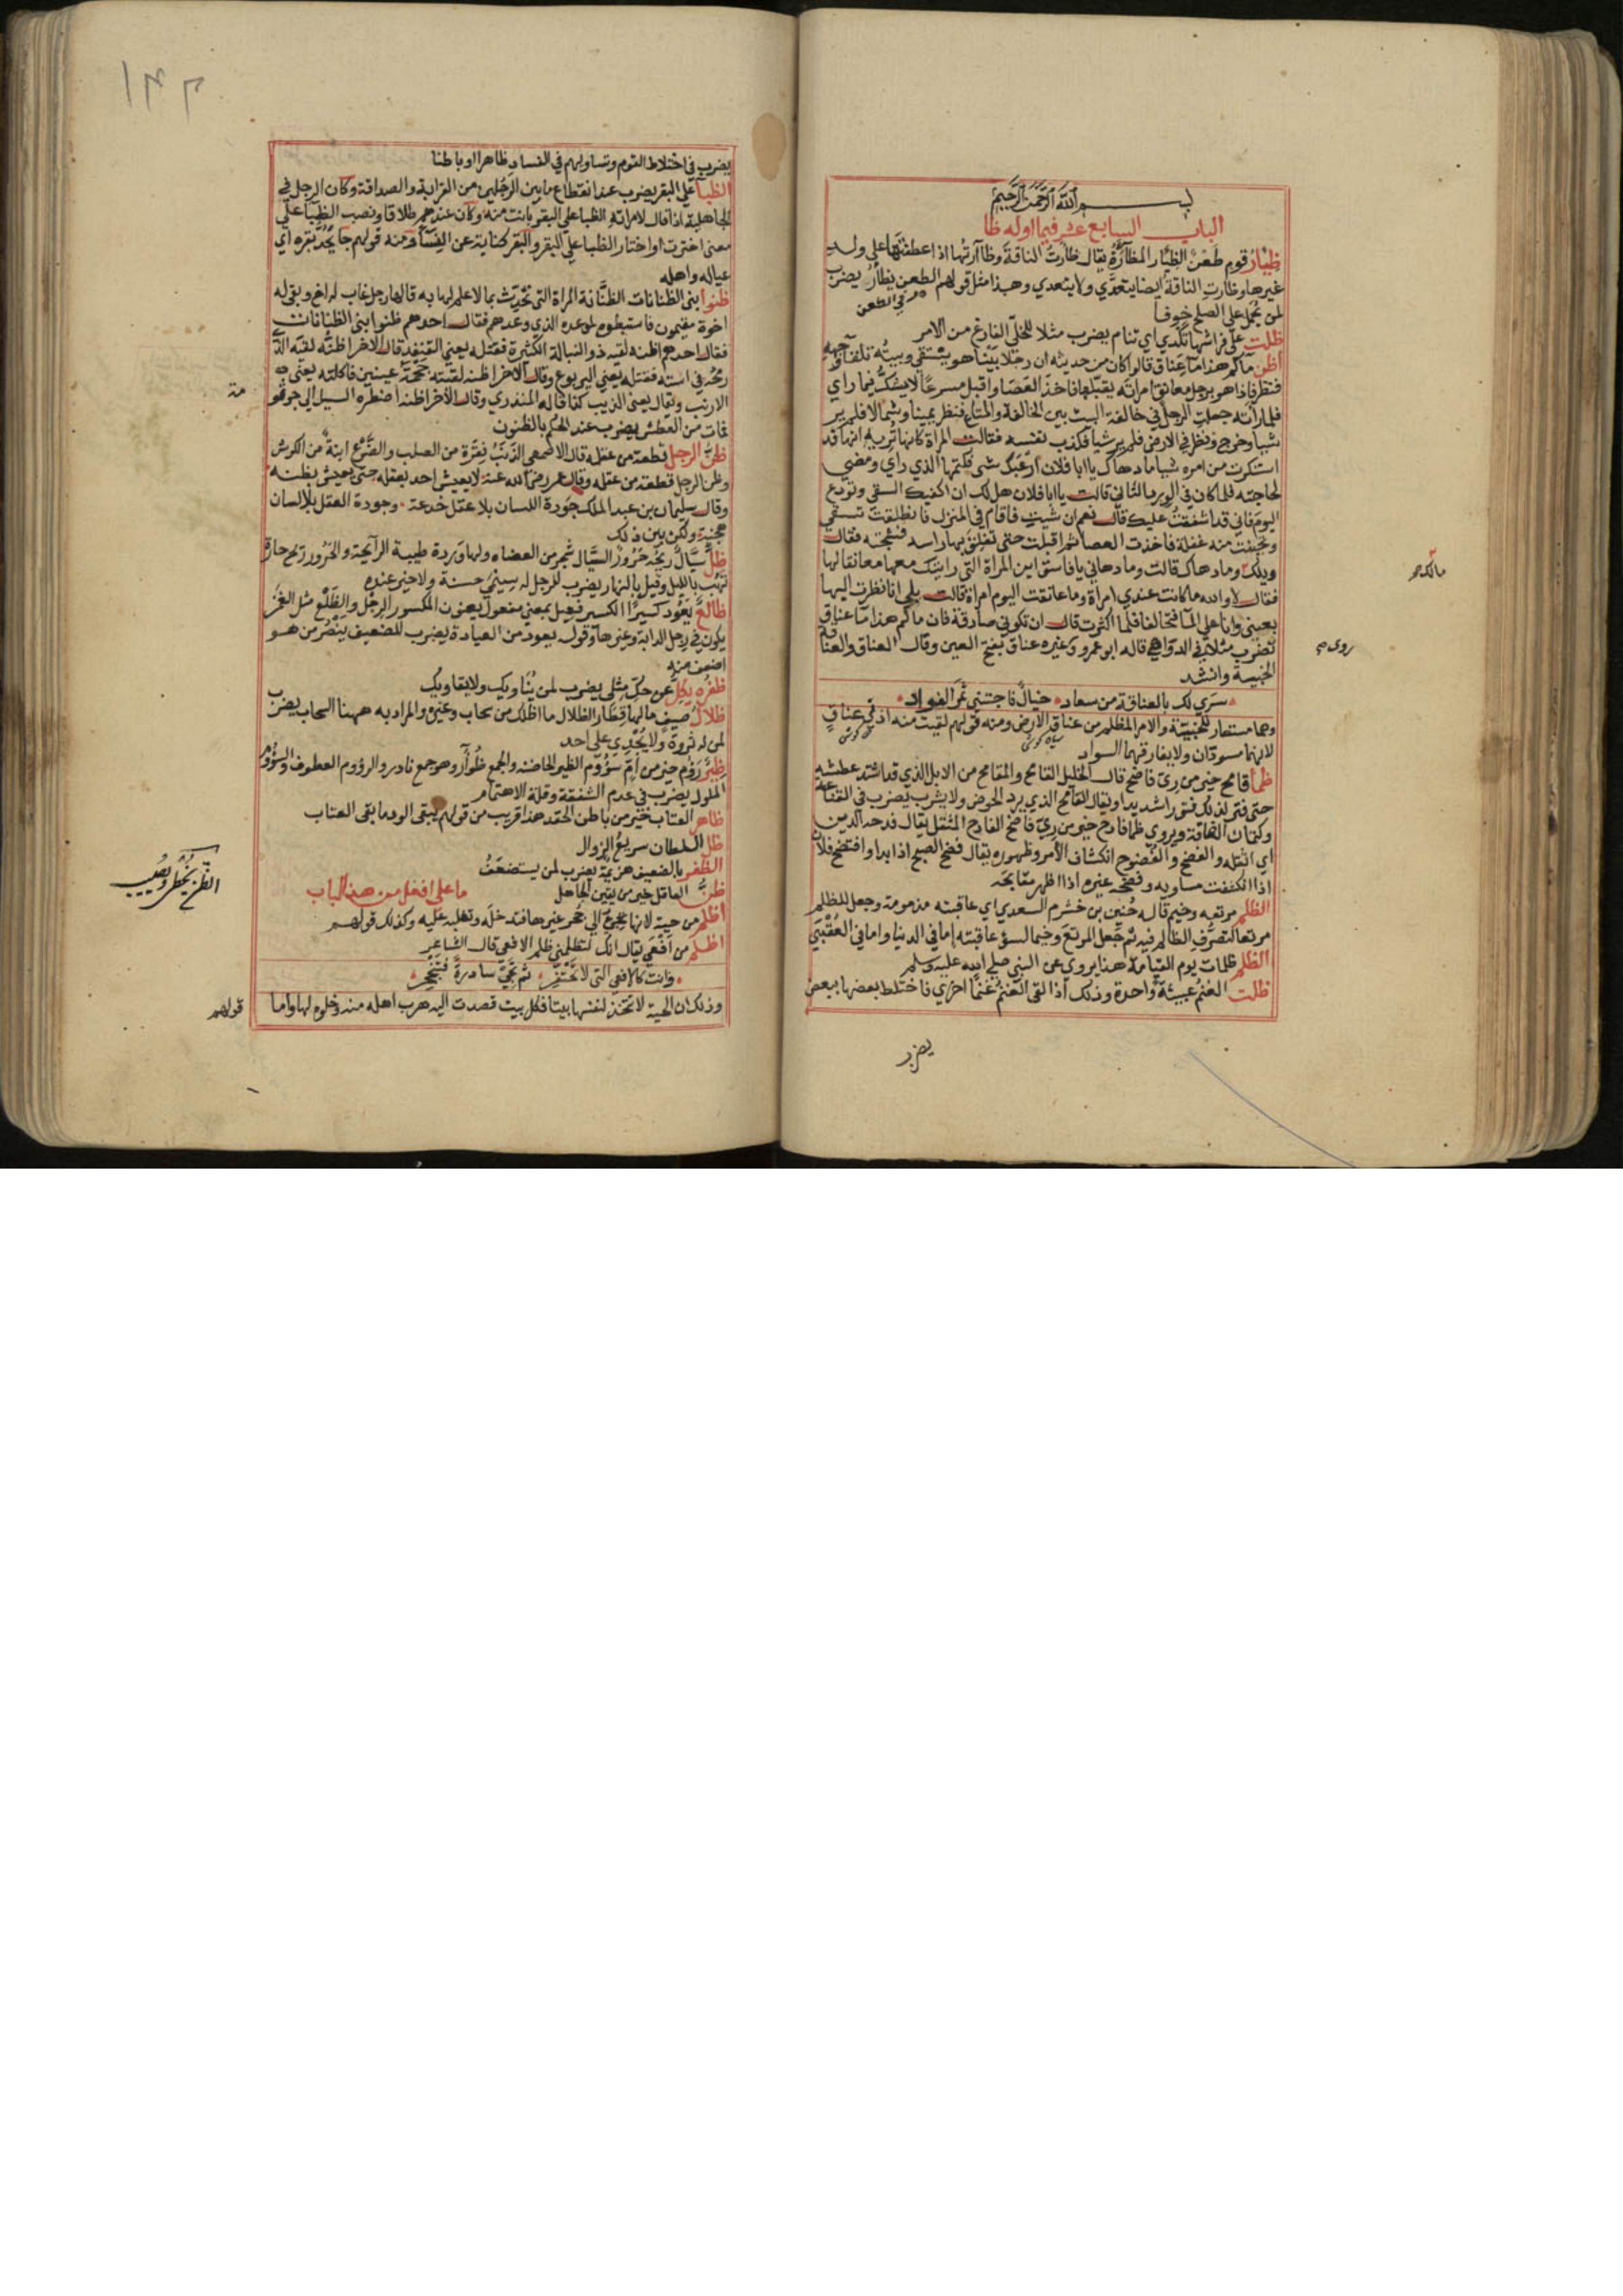 بسم الله الرحمن الرحيم
الباب السابع عشر فيما اوله ظا
ظِئارُ قوم طَعْنٌ الظِئار المظآرَةُ يقال ظأرتُ الناقةَ وظاآرتُها اذا عطفتَها على ولدِ
غيرها وظأرتِ الناقة ايضا يتعدّي ولا يتعدي وهذا مثل قولهم الطعن يظأرُ يضرب
في الطعن
لمن يُحمل على الصلح خوفا
ظلت على فراشها تكدي اي تنام يضرب مثلا للخليّ الفارغ من الامر
اظن ماكم هذا ما عناق قالوا كان من حديثه ان رجلا بينا هو يستقي وبيته تلقاوجهه
فنظر فاذا هو برجل معانق امراته يقبّلها فاخذ العصا واقبل مسرعًا لا يشكّ فيما راي
فلما رأته جعلت الرجل في خالفة البيت بين الخالفة والمتاع فنظر يمينا وشمالا فلم ير
شيا وخرج ونظر في الارض فلم ير شيا فكذب نفسه فقالت المراة كانها تُريه انها قد
استنكرت من امره شيا ما دهاك يا ابا فلان ارعبك شي فكتمها الذي راي ومضي
لحاجته فلما كان في الورد الثاني قالت يا ابا فلان هل لك ان اكفيك السقي وتودع
اليوم فاني قد اشفقتُ عليك قال نعم ان شيت فاقام في المنزل فانطلقت تسقي
وتحيّنت منه غفلة فاخذت العصا ثم اقبلت حتى تفلق بها راسه فشجته فقال
ويلك وما دهاك قالت وما دهاني يا فاسق اين المراة التي رايتك معها معانقا لها
فقال لا والله ما كانت عندي امراة وما عانقت اليوم امراة قالت بلي انا نظرت اليها
بعيني وانا على المآ فتحالفا فلما اكثرت قال ان تكوني صادقة فان ماكم هذا ما عناق
تضرب مثلا في الدواهي قاله ابو عمرو وغيره عناق بفتح العين وقال العناق والعناقة
الخيبة وانشد
سَري لك بالعناقة من سعاد خيالٌ فاجتني ثمر الفواد
وهما مستعار للخيبة والامر المظلم من عناق الارض ومنه قولهم لقيت منه اذني عناقٍ
لانهما مسودّان ولا يفارقهما السواد
ظمأ قامح خير من ريّ فاضح قال الخليل القامح والمقامح من الابل الذي قد اشتد عطشه
حتى فتر لذلك فتورا شديدا ويقال القامح الذي يرد الحوض ولا يشرب يضرب في القناعة
وكتمان الفاقة ويروي ظما فادح خير من ريّ فاضح الفادح المثقل يقال فدحه الدين
اي اثقله والفضح والفُضوح انكشاف الامر وظهوره يقال فضح الصبح اذا بدا وافتضح فلان
اذا انكشفت مساويه وفضحه غيره اذا اظهر مقابحه
الظلم مرتعه وخيم قاله حُنين بن خشرم السعدي اي عاقبته مذمومة وجعل للظلم
مرتعا لتصرُّف الظالم فيه ثم جعل المرتع وخيما لسوء عاقبته إما في الدينا واما في العقبي
الظلم ظلمات يوم القيامة هذا يروي عن النبي صلى الله عليه وسلم
ظلت الغنمُ عبيثةً واحدة وذلك اذا لقي الغنمُ غنمًا اخري فاختلط بعضها ببعض
يضرب
روي
يضرب في اختلاط القوم وتساويهم في الفساد ظاهرا وباطنا
الظبا على البقر يضرب عند انقطاع ما بين الرجُلين من القرابة والصداقة وكان الرجل في
الجاهلية اذا قال لامراته الظبا على البقر بانت منه وكان عندهم طلاقا ونصب الظبا على
معنى اخترت او اختار الظبا على البقر والبقر كناية عن النسآ ومنه قولهم جا يجرُّ بقره اي
عياله واهله
ظنوا ابني الظنانات الظنّانة المراة التي تحدّث بما لا علم لها به قالها رجل غاب له اخ وبقي له
اخوة مقيمون فاستبطوه لموعده الذي وعدهم فقال احدهم ظنوا ابني الظنانات
فقال احدهم اظنه لقيه ذو النبالة الكثيرة فقتله يعني القنفذ قال الاخر اظنّه لقيه الذي
رمحُه في استه فقتله يعني اليربوع وقال الاخر اظنه لقيته جحمةُ عينين فاكلته يعني به
الارنب ويقال يعني الذيب كذا قاله المنذري وقال الاخر اظنه اضطره السيل الي جوثو
فمات من العطش يضرب عند الحكم بالظنون
ظنُّ الرجل قطعة من عقله قال الاصمعي الذنَبُ فِقرة من الصلب والضرع ابنةٌ من الكرش
وظن الرجل قطعة من عقله وقال عمر رضي الله عنه لا يعيش احد بعقله حتى يعيش بظنه
وقال سليمان بن عبد الملك جَودة اللسان بلا عقل خدعة وجودة العقل بلا لسان
هجنة ولكن بين ذلك
ظلُّ سيَّالٍ ريحُه حَرُورٌ السَّيَال شجر من العضاه ولها وَردة طيبة الرايحة والحَرُور ريح حارة
تهُب بالليل وقيل بالنهار يضرب للرجل له سِيمي حسنة ولا خير عنده
ظالعٌ يَعُود كسيرًا الكسير فعيل بمعني مفعول يعنون المكسور الرِجْل والظَلْع مثل الغمز
يكون في رِجل الدابة وغيرها وقوله يعود من العيادة يضرب للضعيف ينصُر من هو
اضعف منه
ظُفُره يَكِلُّ عن حكّ مِثْلي يضرب لمن يُناويك ولا يقاويك
ظلالُ صيفٍ ما لها قِطار الظلال ما اظلك من سحاب وغيره والمراد به ههنا السحاب يضرب
لمن له ثروة ولا يُجْدي على احد
ظِئرٌ رَؤم خير من اُمّ سؤوم الظير الحاضنه والجمع ظُوآر وهو جمع نادر والرؤوم العطوف والسؤوم
الملول يضرب في عدم الشفقة وقلة الاهتمام
ظاهر العتاب خير من باطن الحقد هذا قريب من قولهم يبقى الود ما بقى العتاب
ظل السلطان سريعُ الزوال
الظفر بالضعيف هزيمة يضرب لمن يستضعَفُ
ظنُّ العاقل خير من يقين الجاهل
ما على افعل من هذا الباب
اظلم من حية لانها تجيءُ الي جُحر غيرها فتدخله وتغلبه عليه وكذلك قولهم
اظلم من افعَي يقال انك لتظلمني ظلم الافعي قال الشاعر
وانت كالافعي التي لا تحتفر ثم تَجيّ سادرةً فتنجحِر
وذلك ان الحية لا تتخذ لنفسها بيتا فكل بيت قصدت اليه هرب اهله منه وخلوه لها واما
قولهم
الظن يُخطي ويُصيب